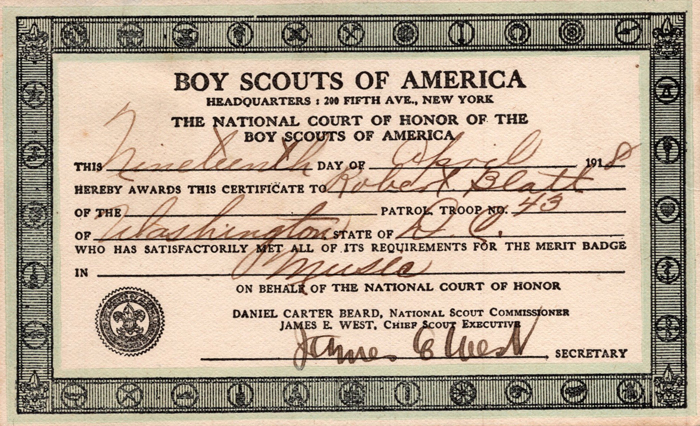 BOY SCOUTS OF AMERICA
HEADQUARTERS : 200 FIFTH AVE., NEW YORK
THE NATIONAL COURT OF HONOR OF THE
BOY SCOUTS OF AMERICA
THIS Nineteenth DAY OF April 1918
HEREBY AWARDS THIS CERTIFICATE TO Robert Blatt
OF THE PATROL, TROOP NO. 43
OF Washington STATE OF D. C.
WHO HAS SATISFACTORILY MET ALL OF ITS REQUIREMENTS FOR THE MERIT BADGE
IN Music
ON BEHALF OF THE NATIONAL COURT OF HONOR
DANIEL CARTER BEARD, NATIONAL SCOUT COMMISSIONER
JAMES E. WEST, CHIEF SCOUT EXECUTIVE
James E West SECRETARY